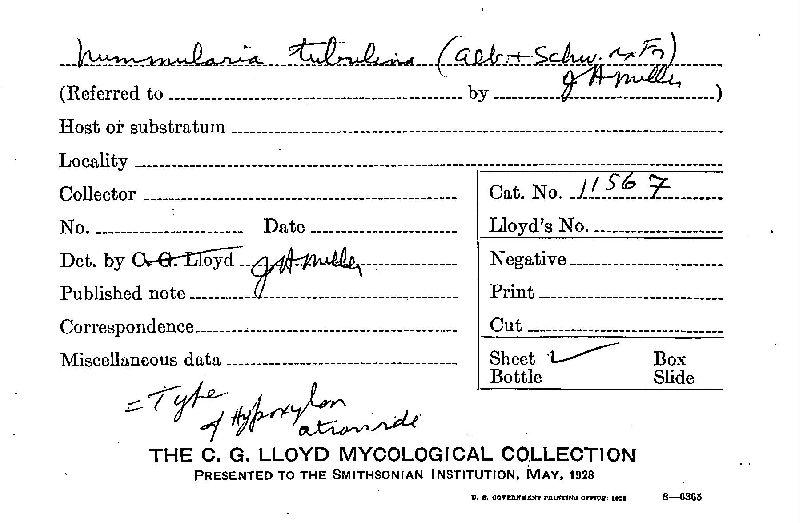 Nummularia tubulina (Alb + Schw. ex Fr)
(Referred to by J H Miller )
Host or substratum
Locality
Collector
Cat. No. 11567
No. Date
Lloyd's No.
Det. by C. G. Lloyd J H. Miller
Negative
Published note
Print
Correspondence
Cut
Miscellaneous data
Sheet ✓ Box
Bottle Slide
= Type
of Hypoxylon
THE C. G. LLOYD MYCOLOGICAL COLLECTION
PRESENTED TO THE SMITHSONIAN INSTITUTION, MAY, 1928
U. S. GOVERNMENT PRINTING OFFICE: 1928 8—6363